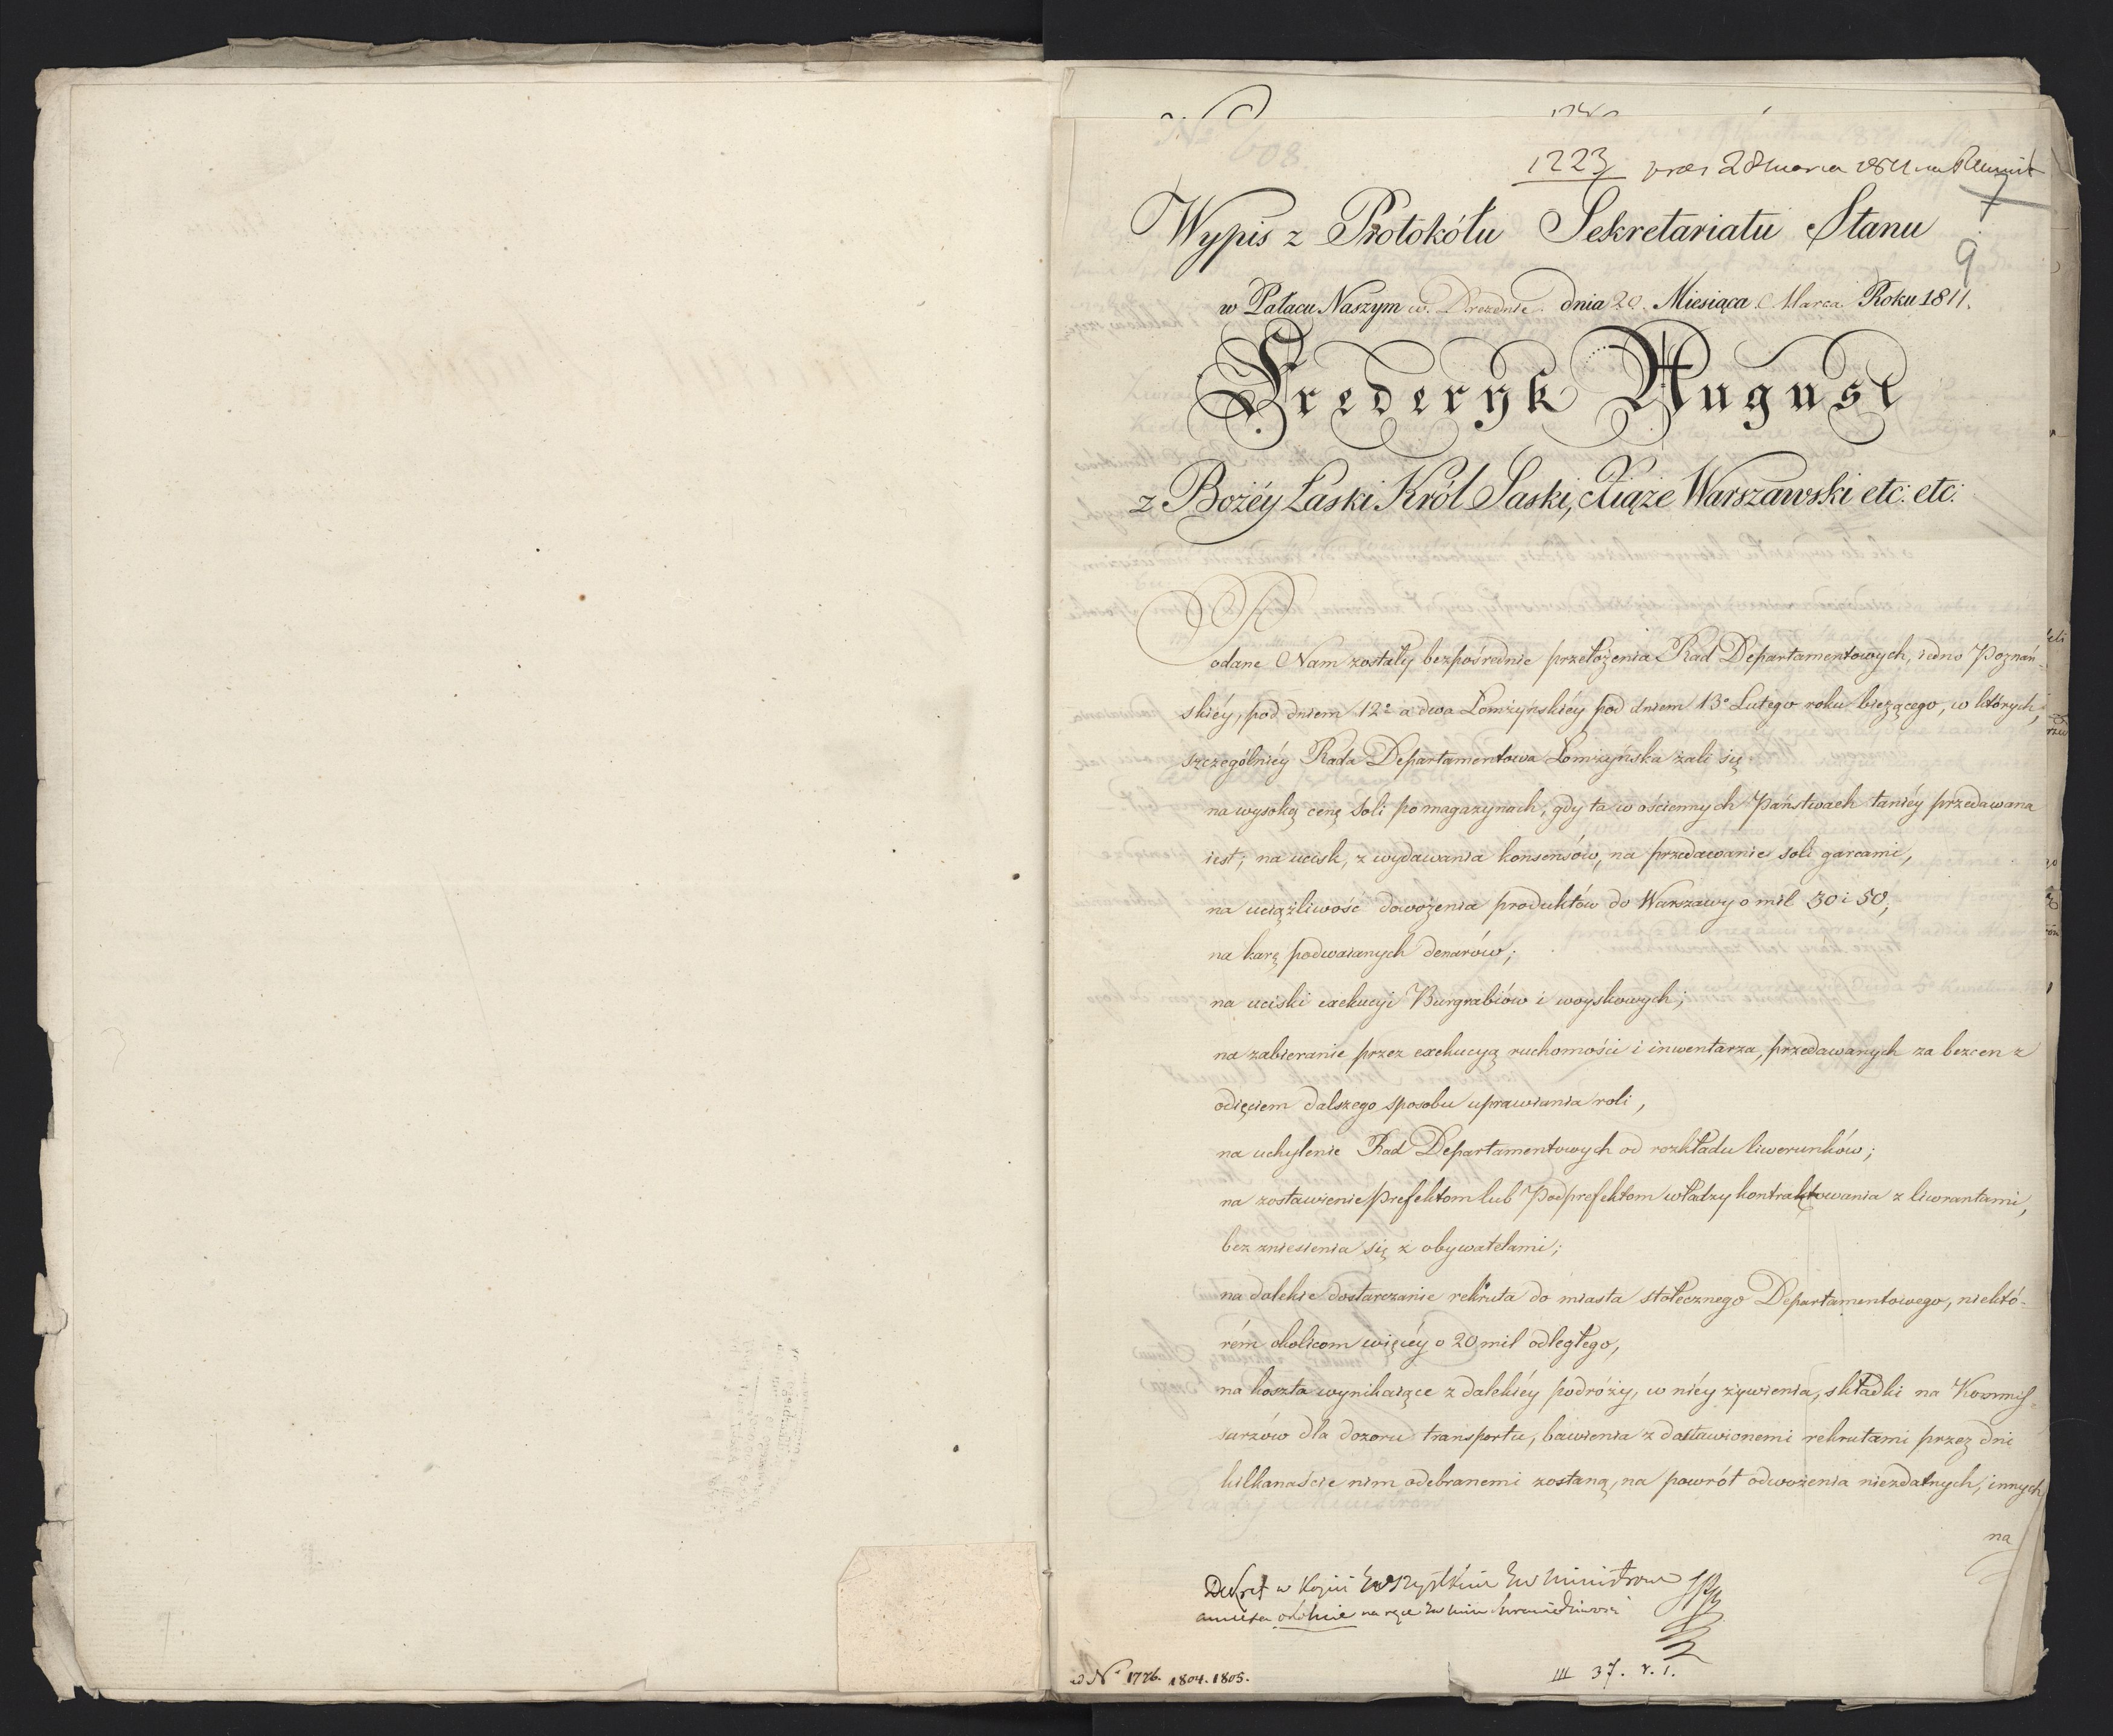 N. 608.
1223 28 marca 1811
7
9
Wypis z Protokółu Sekretariatu Stanu
w Pałacu Naszym w Dreznie dnia 20. Miesiąca Marca Roku 1811.
Frederyk August
z Bożéy Łaski Król Saski, Xiąże Warszawski etc: etc:
Podane Nam zostały bezpośrednie przełożenia Rad Departamentowych, iedno Poznań-
skiéy, pod dniem 12º a dwa Łomżyńskiéy pod dniem 13º Lutego roku bieżącego, w których,
szczególniéy Rada Departamentowa Łomżyńska żali się
na wysoką cenę soli po magazynach, gdy ta w ościennych Państwach taniéy przedawana
iest; na ucisk, z wydawania konsensów, na przedawanie soli garcami,
na uciążliwość dowożenia produktów do Warszawy o mil 30 i 50,
na karę podwaianych denarów;
na uciski exekucyi Burgrabiów i woyskowych;
na zabieranie przez exekucyą ruchomości i inwentarza, przedawanych za bezcen z
odięciem dalszego sposobu uprawiania roli,
na uchylenie Rad Departamentowych od rozkładu liwerunków;
na zostawienie Prefektom lub Podprefektom władzy kontraktowania z liwrantami,
bez zniesienia się z obywatelami;
na dalekie dostarczanie rekruta do miasta stołecznego Departamentowego, niektó-
rém okolicom więcéy o 20 mil odległego,
na koszta wynikaiące z dalekiéy podróży, w niéy żywienia, składki na Kommis-
sarzów dla dozoru transportu, bawienia z dostawionemi rekrutami przez dni
kilkanaście nim odebranemi zostaną, na powrót odwożenia niezdatnych, innych
na
Dekret w kopii wszystkim Ministrom
ad Nº 1776. 1804. 1805.
III 37. r. 1.